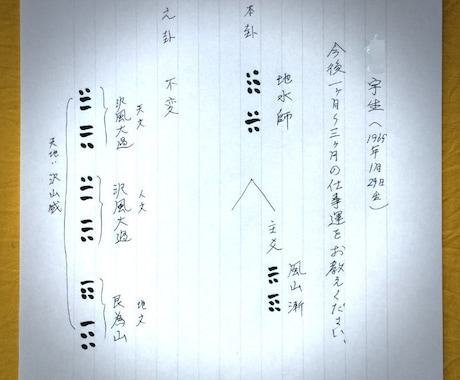 今後一ヶ月〜三ヶ月の仕事運をお教えください。
本卦
地水師
主爻
風山漸
之卦 不変
天爻
沢風大過
人爻
沢風大過
地爻
艮為山
天地 沢山咸